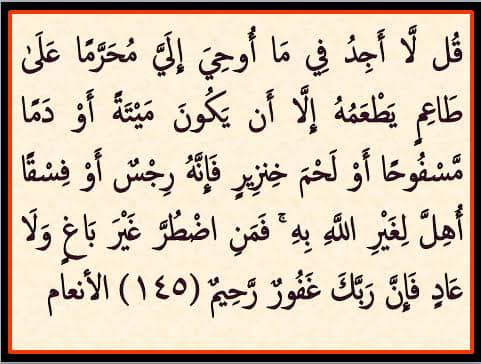 قُل لَّا أَجِدُ فِي مَا أُوحِيَ إِلَيَّ مُحَرَّمًا عَلَىٰ
طَاعِمٍ يَطْعَمُهُ إِلَّا أَن يَكُونَ مَيْتَةً أَوْ دَمًا
مَّسْفُوحًا أَوْ لَحْمَ خِنزِيرٍ فَإِنَّهُ رِجْسٌ أَوْ فِسْقًا
أُهِلَّ لِغَيْرِ اللَّهِ بِهِ ۚ فَمَنِ اضْطُرَّ غَيْرَ بَاغٍ وَلَا
عَادٍ فَإِنَّ رَبَّكَ غَفُورٌ رَّحِيمٌ (١٤٥) الأنعام